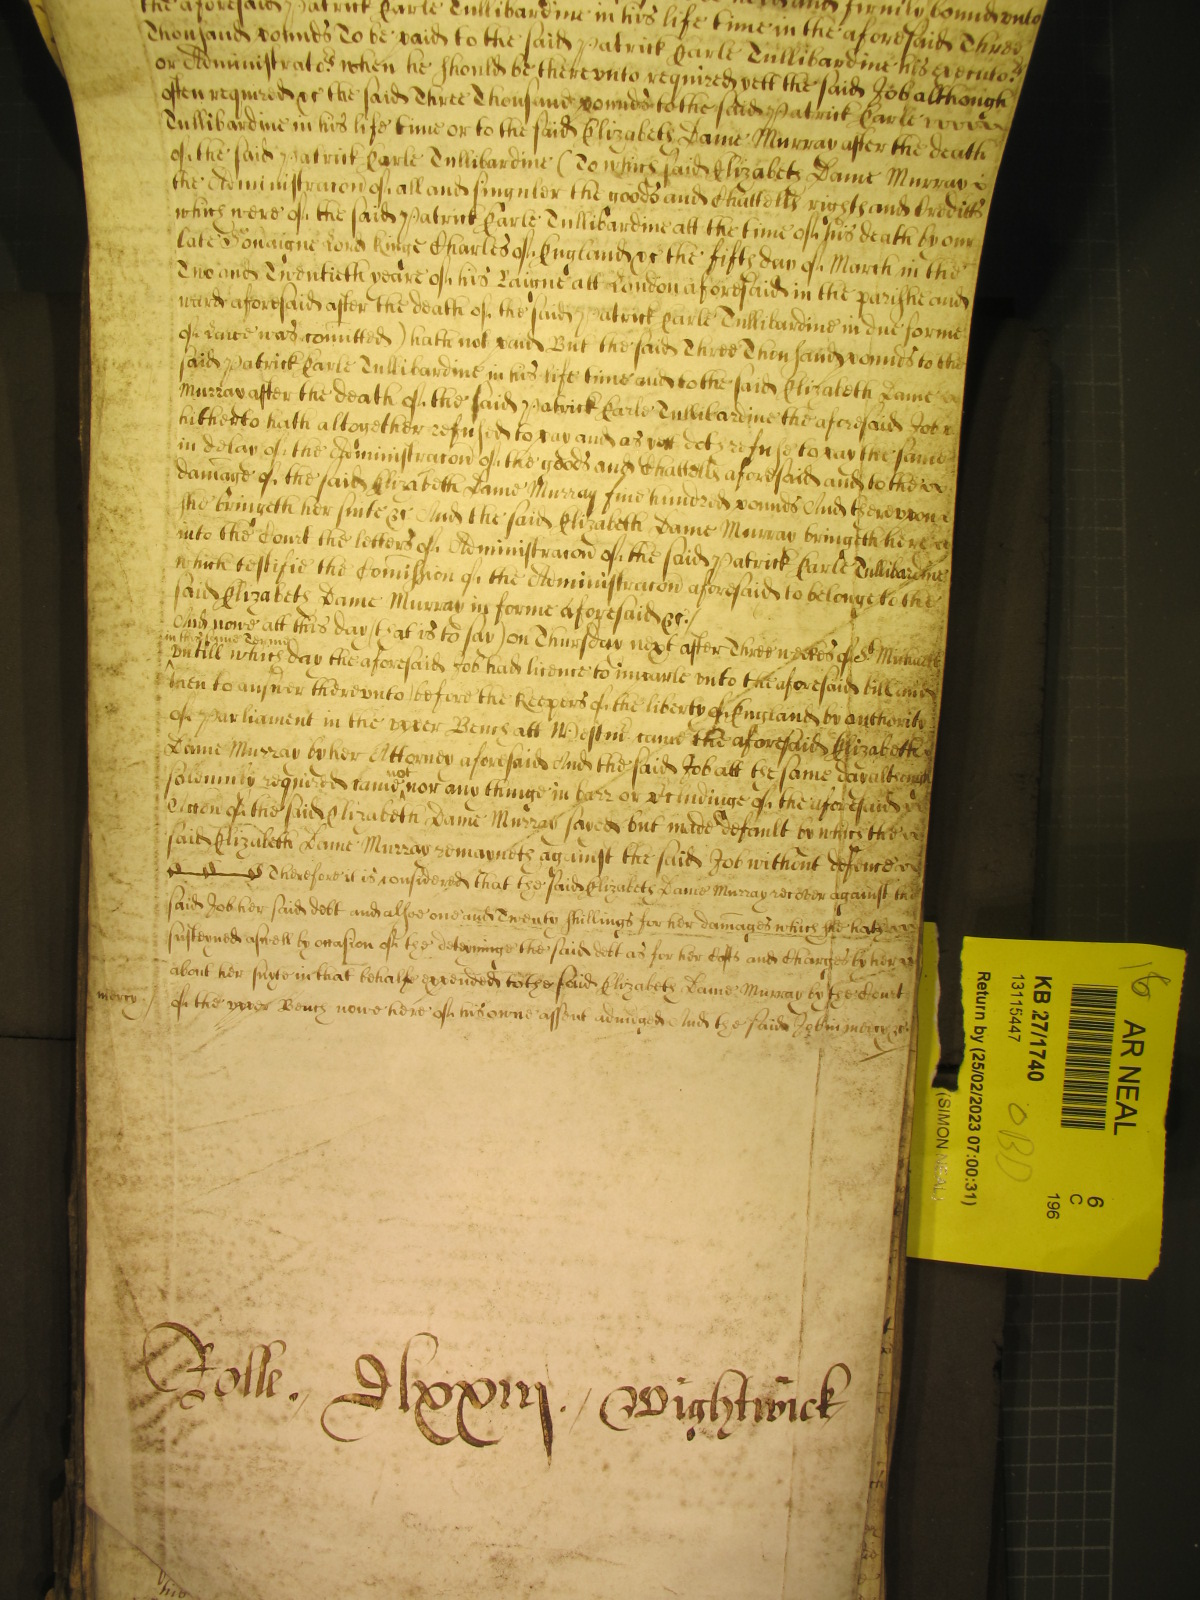 the aforesaid Patrick Earle Tullibardine in his life time in the aforesaid Three
Thousand pounds To be paid to the said Patrick Earle Tullibardine his executors
or Administrators when he should be therevnto required yett the said Job although
often required &c the said Three Thousand pounds to the said Patrick Earle
Tullibardine in his life time or to the said Elizabeth Dame Murray after the death
of the said Patrick Earle Tullibardine (To which said Elizabeth Dame Murray
the Administracon of all and singuler the goods and Chattells rights and Creditts
which were of the said Patrick Earle Tullibardine att the time of his death by our
late Soueraigne Lord Kinge Charles of England &c the fifth day of March in the
Two and Twentieth yeare of his Raigne att London aforesaid in the parishe and
ward aforesaid after the death of the said Patrick Earle Tullibardine in due forme
of Lawe was comitted) hath not paid But the said Three Thousand pounds to the
said Patrick Earle Tullibardine in his life time and to the said Elizabeth Dame
Murray after the death of the said Patrick Earle Tullibardine the aforesaid Job
hitherto hath altogether refused to pay and as yet doth refuse to pay the same
in delay of the Administracon of the goods and Chattells aforesaid and to the
damage of the said Elizabeth Dame Murray fiue hundred pounds And therevpon
she bringeth her suite &c And the said Elizabeth Dame Murray bringeth here
into the Court the letters of Administracon of the said Patrick Earle Tullibardine
which testifie the Comission of the Administracon aforesaid to belonge to the
said Elizabeth Dame Murray in forme aforesaid &c/
And nowe att this day (that is to say) on Thursday next after Three weekes of St Michaell
in this same Terme
vntill which day the aforesaid Job had licence to imparle vnto the aforesaid bill and
then to answer therevnto) before the Keepers of the liberty of England by authority
of Parliament in the vpper Bench att Westm came the aforesaid Elizabeth
Dame Murray by her Attorney aforesaid And the said Job att the same day although
solemnly required came not nor any thinge in barr or precludinge of the aforesaid
Accon of the said Elizabeth Dame Murray sayed but made default by which the
said Elizabeth Dame Murray remayneth against the said Job without defence
Therefore it is considered that the said Elizabeth Dame Murray recover against the
said Job her said debt and alsoe one and Twenty shillings for her damages which she hath
susteyned aswell by occasion of the deteyninge the said debt as for her Costs and Charges by her
about her suyte in that behalfe expended to the said Elizabeth Dame Murray by the Court
mercy/
of the vpper Bench nowe here of his owne assent adiudged And the said Job in mercy &c
Rolle. Dlxxiij. Wightwick
16
AR NEAL
KB 27/1740
13115447
OBD
Return by (25/02/2023 07:00:31)
(SIMON NEAL)
6
C
196